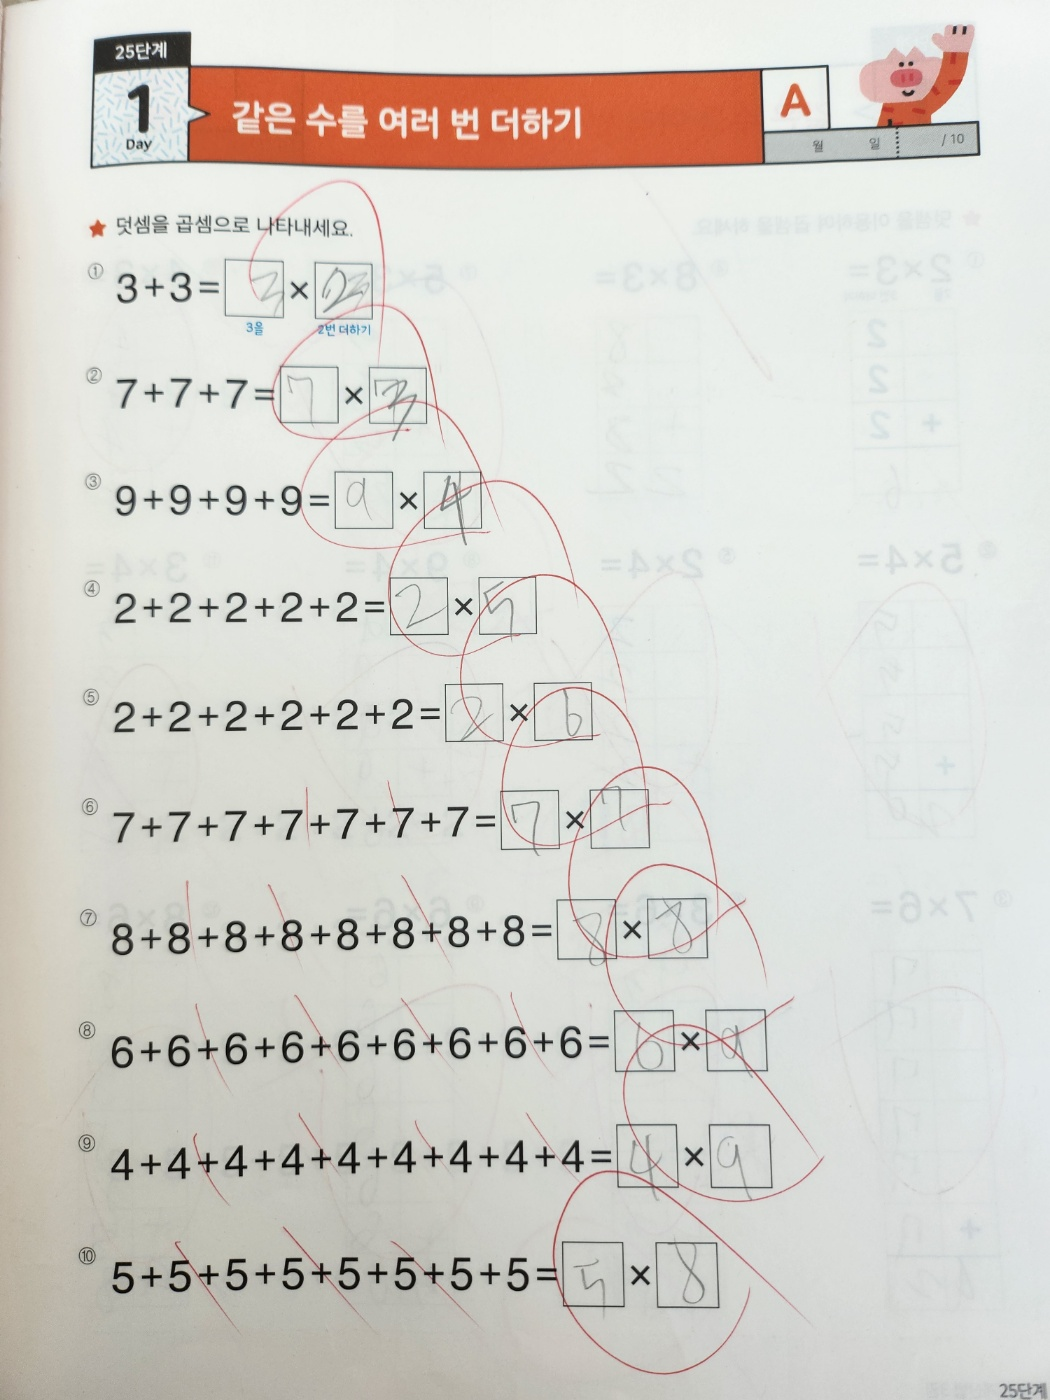 25단계
1
Day
같은 수를 여러 번 더하기
A
월 일 /10
★ 덧셈을 곱셈으로 나타내세요.
① 3+3= 3 × 2
3을 2번 더하기
② 7+7+7= 7 × 3
③ 9+9+9+9= 9 × 4
④ 2+2+2+2+2= 2 × 5
⑤ 2+2+2+2+2+2= 2 × 6
⑥ 7+7+7+7+7+7+7= 7 × 7
⑦ 8+8+8+8+8+8+8+8= 8 × 8
⑧ 6+6+6+6+6+6+6+6+6= 6 × 9
⑨ 4+4+4+4+4+4+4+4+4= 4 × 9
⑩ 5+5+5+5+5+5+5+5= 5 × 8
25단계